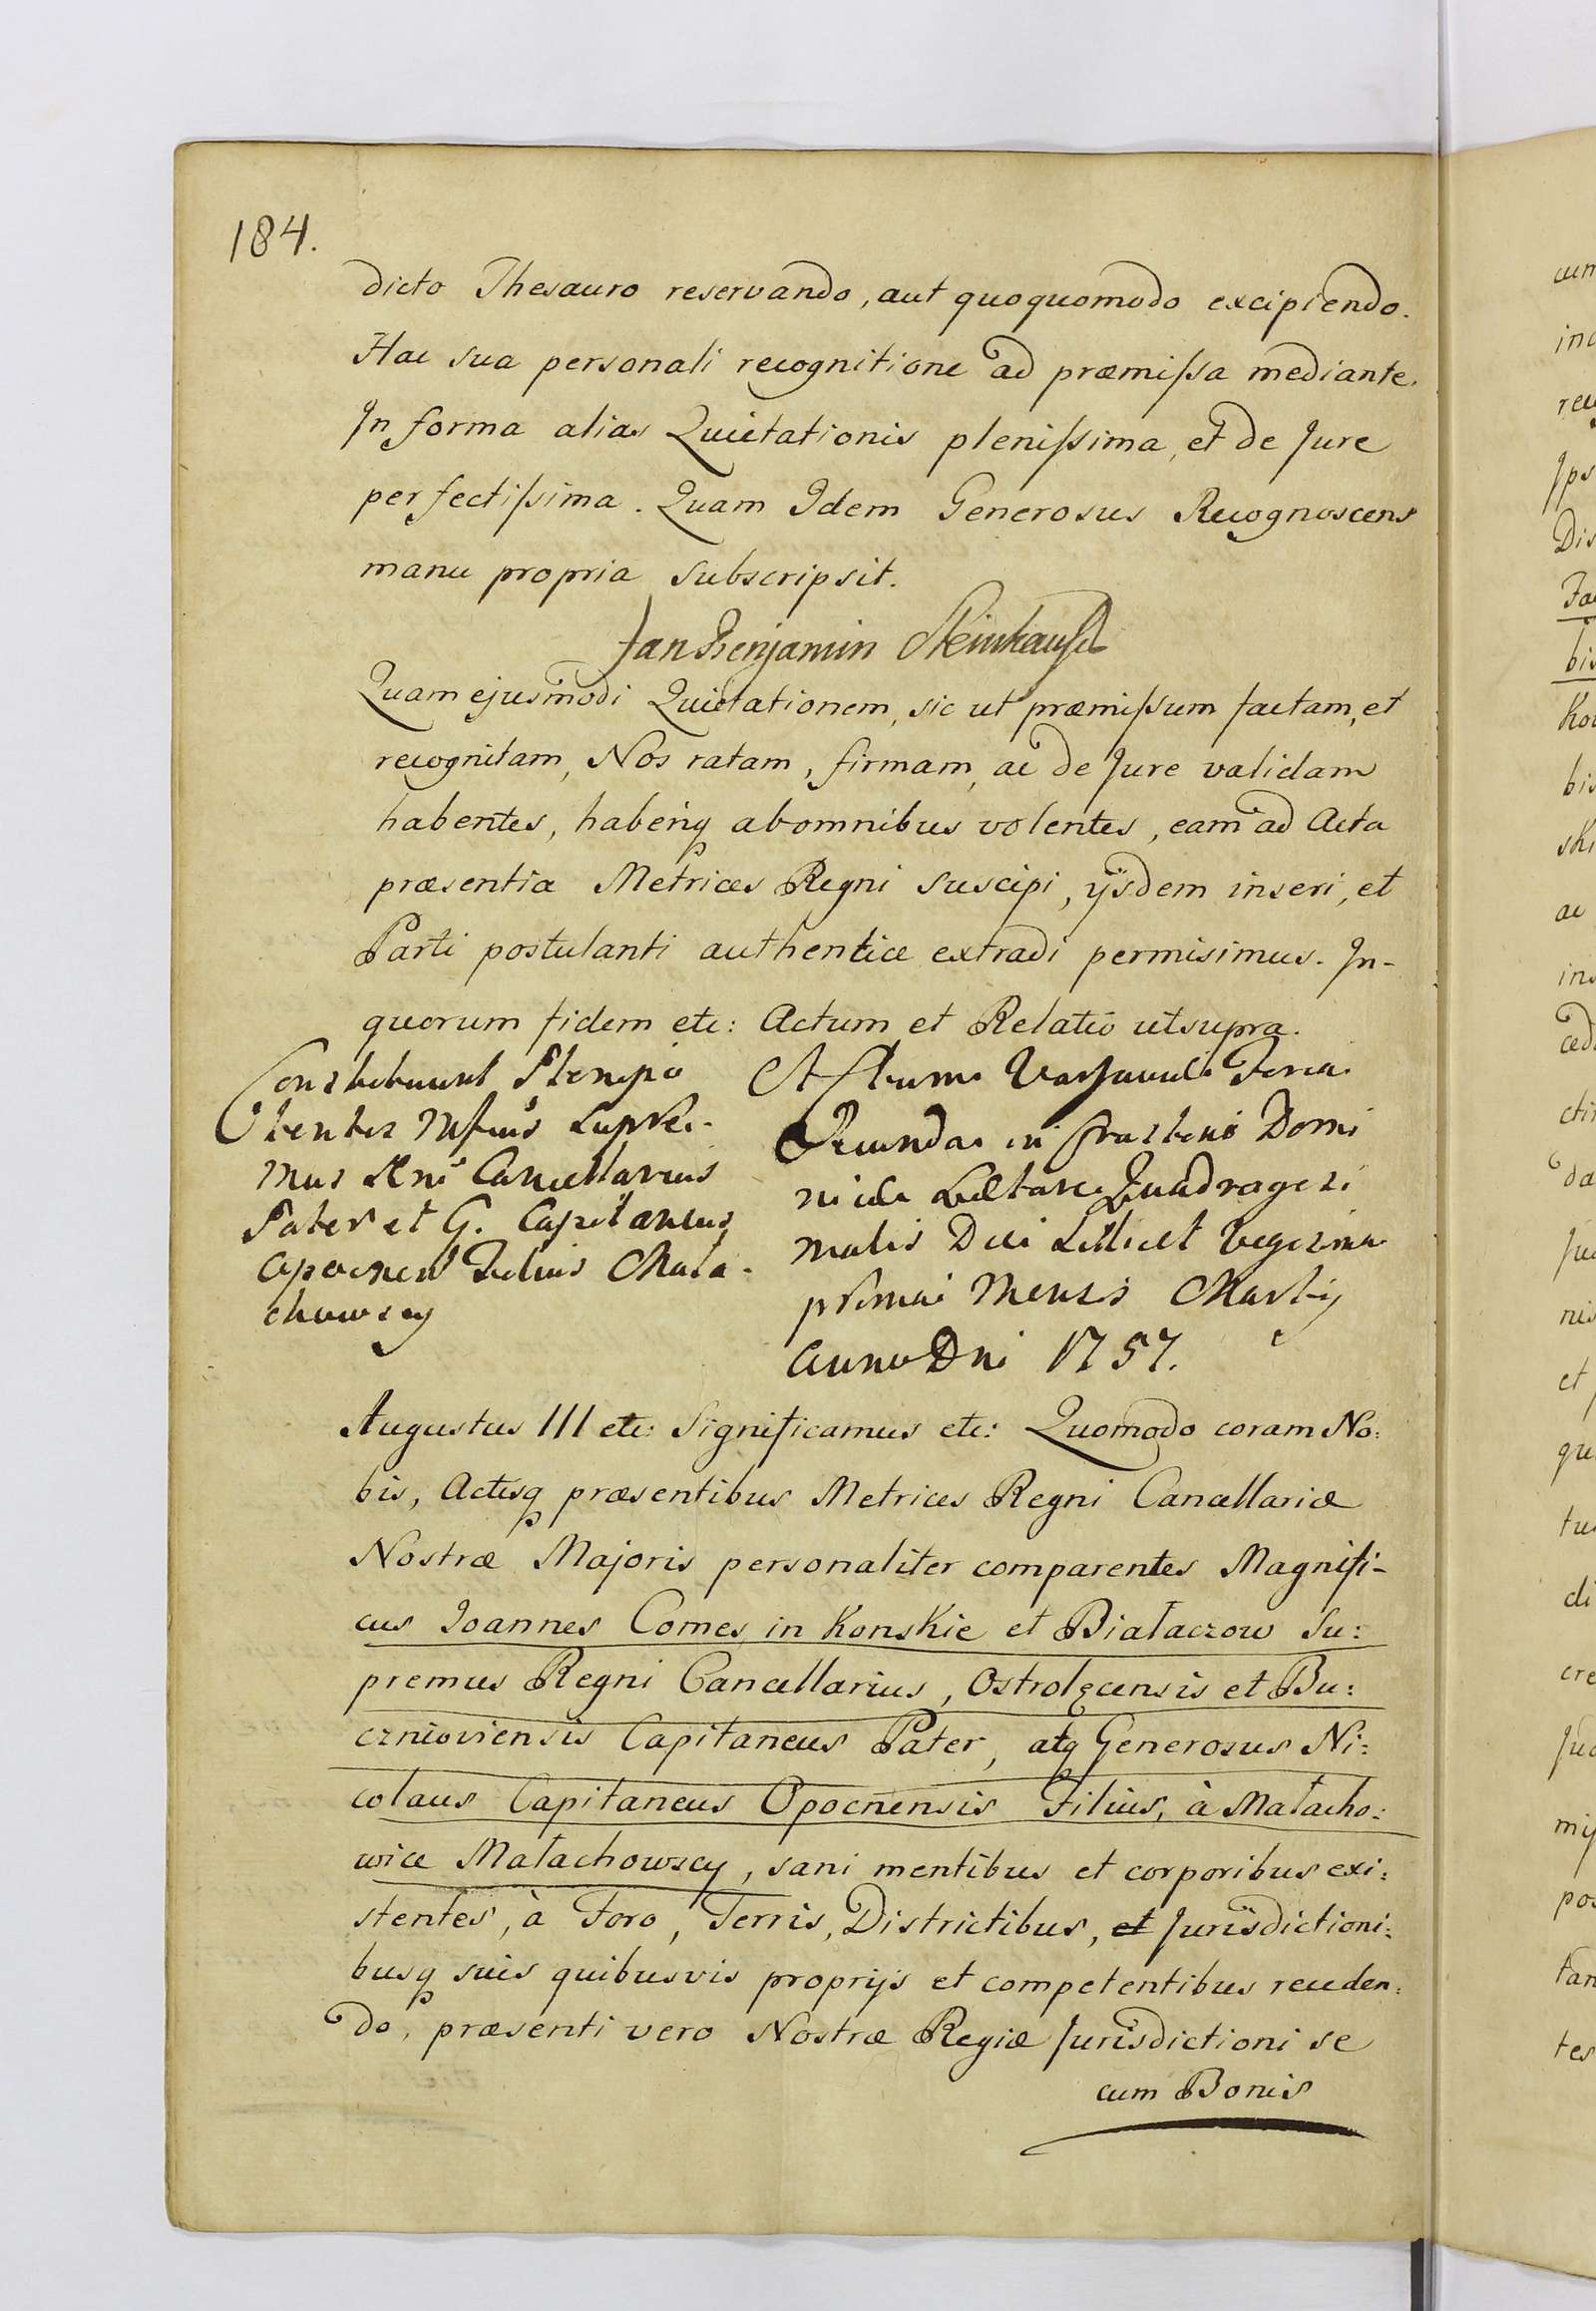 184.
dicto Thesauro reservando, aut quoquomodo excipiendo.
Hac sua personali recognitione ad præmissa mediante.
In forma alias Quietationis plenissima, et de Jure
perfectissima. Quam Idem Generosus Recognoscens
manu propria subscripsit.
Jan Benjamin Steinhauser
Quam ejusmodi Quietationem, sic ut præmissum factam, et
recognitam, Nos ratam, firmam, ac de Jure validam
habentes, haberiq abomnibus volentes, eam ad Acta
præsentia Metrices Regni suscipi, ijsdem inseri, et
Parti postulanti authentice extradi permisimus. In-
quorum fidem etc: Actum et Relatio utsupra.
Constituunt Plenipo
tentes Mfcus Supre-
mus Rni Cancellarius
Pater et G. Capitaneus
Opocnen Filius Mala-
chowscy
Actum Varsaviæ Feria
Secunda in Crastino Domi
nicæ Lætare Quadragesi
malis Die Scilicet Vigesima
prima Mensis Martij
Anno Dni 1757.
Augustus III etc: Significamus etc: Quomodo coram No:
bis, Actisq præsentibus Metrices Regni Cancellariæ
Nostræ Majoris personaliter comparentes Magnifi-
cus Joannes Comes in Konskie et Białaczow Su:
premus Regni Cancellarius, Ostrolęcensis et Bu:
cznioviensis Capitaneus Pater, atq Generosus Ni:
colaus Capitaneus Opocnensis Filius, à Małacho:
wice Małachowscy, sani mentibus et corporibus exi:
stentes, à Foro, Terris, Districtibus, et Jurisdictioni:
busq suis quibusvis proprijs et competentibus receden:
do, præsenti vero Nostræ Regiæ Jurisdictioni se
cum Bonis